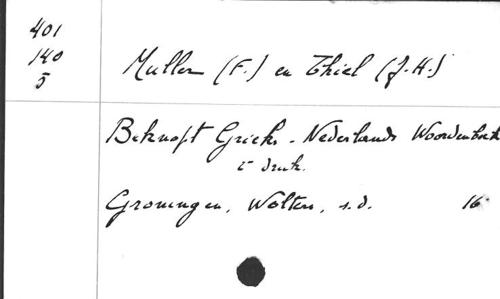 401
140
5
Muller (F.) en Thiel (J.H.)
Beknopt Grieks-Nederlands Woordenboek
5e druk.
Groningen, Wolters, s.d. 16